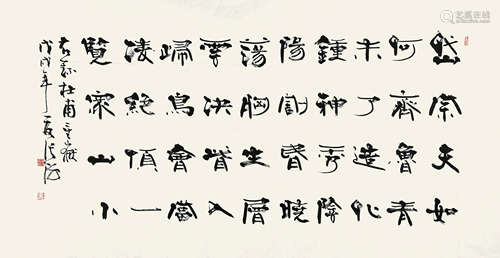 岱宗夫如
何齊魯青
未了造化
鍾神秀陰
陽割昏曉
蕩胸生層
雲決眥入
歸鳥會當
凌絕頂一
覽眾山小
右錄杜甫望嶽
戊戌年夏